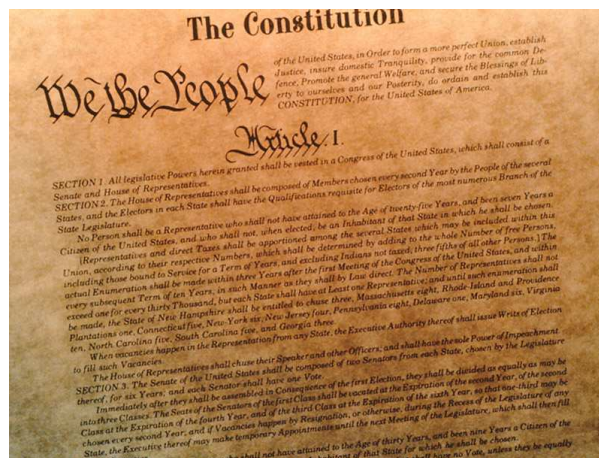 The Constitution
We the People
of the United States, in Order to form a more perfect Union, establish
Justice, insure domestic Tranquility, provide for the common De-
fence, Promote the general Welfare, and secure the Blessings of Lib-
erty to ourselves and our Posterity, do ordain and establish this
CONSTITUTION, for the United States of America.
Article. I.
SECTION 1. All legislative Powers herein granted shall be vested in a Congress of the United States, which shall consist of a
Senate and House of Representatives.
SECTION 2. The House of Representatives shall be composed of Members chosen every second Year by the People of the several
States, and the Electors in each State shall have the Qualifications requisite for Electors of the most numerous Branch of the
State Legislature.
No Person shall be a Representative who shall not have attained to the Age of twenty-five Years, and been seven Years a
Citizen of the United States, and who shall not, when elected, be an Inhabitant of that State in which he shall be chosen.
[Representatives and direct Taxes shall be apportioned among the several States which may be included within this
Union, according to their respective Numbers, which shall be determined by adding to the whole Number of free Persons,
including those bound to Service for a Term of Years, and excluding Indians not taxed, three fifths of all other Persons.] The
actual Enumeration shall be made within three Years after the first Meeting of the Congress of the United States, and within
every subsequent Term of ten Years, in such Manner as they shall by Law direct. The Number of Representatives shall not
exceed one for every thirty Thousand, but each State shall have at Least one Representative; and until such enumeration shall
be made, the State of New Hampshire shall be entitled to chuse three, Massachusetts eight, Rhode-Island and Providence
Plantations one, Connecticut five, New-York six, New Jersey four, Pennsylvania eight, Delaware one, Maryland six, Virginia
ten, North Carolina five, South Carolina five, and Georgia three.
When vacancies happen in the Representation from any State, the Executive Authority thereof shall issue Writs of Election
to fill such Vacancies.
The House of Representatives shall chuse their Speaker and other Officers; and shall have the sole Power of Impeachment
SECTION 3. The Senate of the United States shall be composed of two Senators from each State, chosen by the Legislature
thereof, for six Years; and each Senator shall have one Vote.
Immediately after they shall be assembled in Consequence of the first Election, they shall be divided as equally as may be
into three Classes. The Seats of the Senators of the first Class shall be vacated at the Expiration of the second Year, of the second
Class at the Expiration of the fourth Year, and of the third Class at the Expiration of the sixth Year, so that one-third may be
chosen every second Year; and if Vacancies happen by Resignation, or otherwise, during the Recess of the Legislature of any
State, the Executive thereof may make temporary Appointments until the next Meeting of the Legislature, which shall then fill
shall not have attained to the Age of thirty Years, and been nine Years a Citizen of the
Inhabitant of that State for which he shall be chosen.
shall have no Vote, unless they be equally